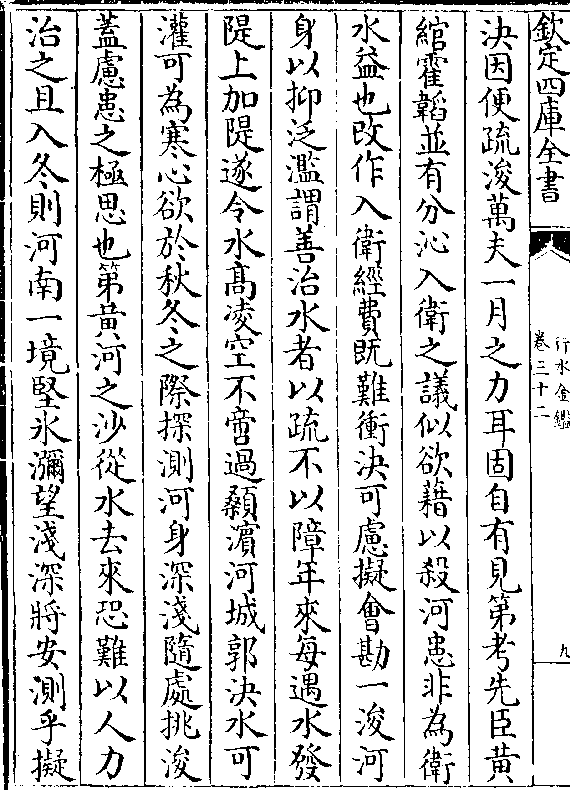 欽定四庫全書
行水金鑑
卷三十二
九
決因便疏浚萬夫一月之力耳固自有見第考先臣黄
綰霍韜並有分沁入衛之議似欲藉以殺河患非為衛
水益也改作入衛經費既難衝決可慮擬會勘一浚河
身以抑泛濫謂善治水者以疏不以障年來每遇水發
隄上加隄遂令水髙凌空不啻過顙濵河城郭決水可
灌可為寒心欲於秋冬之際探測河身深淺隨處挑浚
蓋慮患之極思也第黄河之沙從水去來恐難以人力
治之且入冬則河南一境堅氷瀰望淺深將安測乎擬